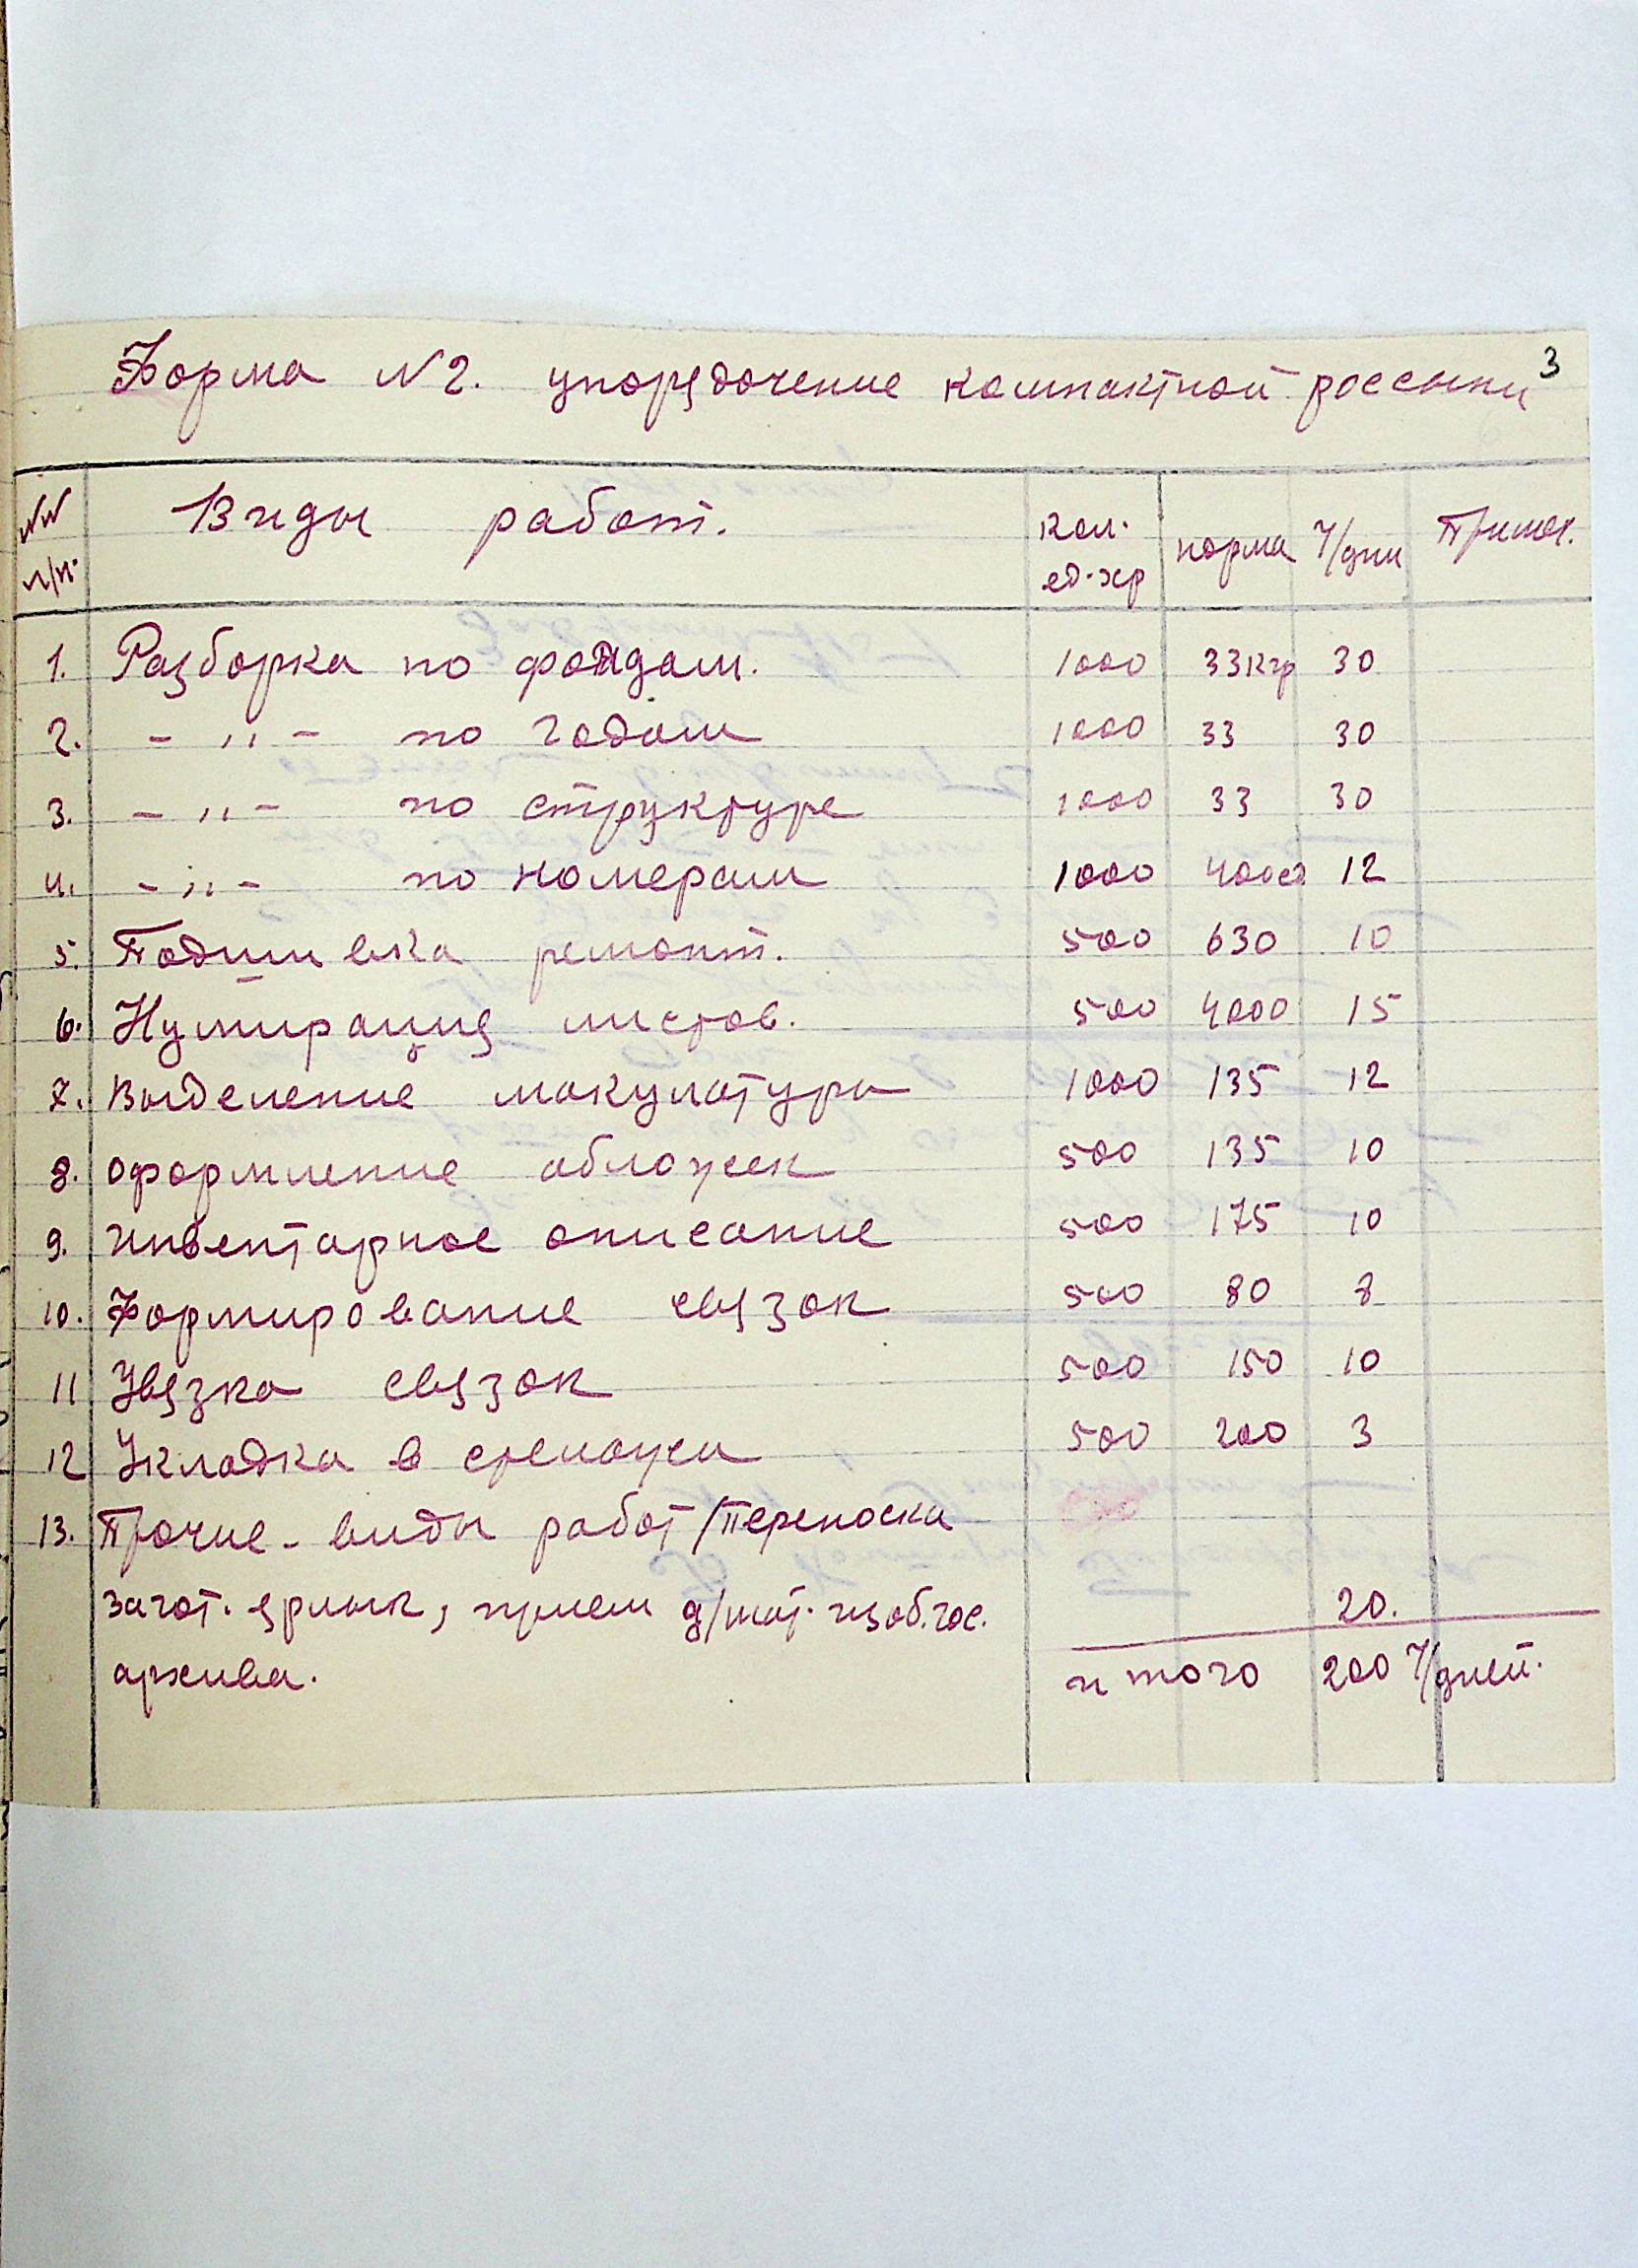 3
Форма N 2. упорядочение компактной россыпи
NN п/п. Виды работ. Кол. ед. хр норма ч/дни Примеч.
1. Разборка по фондам. 1000 33 Кгр 30
2. - ,, - по годам 1000 33 30
3. - ,, - по структуре 1000 33 30
4. - ,, - по номерам 1000 400 ед 12
5. Подшивка ремонт. 500 630 10
6. Нумирация листов. 500 4000 15
7. Выделение макулатуры 1000 135 12
8. Оформление обложек 500 135 10
9. Инвентарное описание 500 175 10
10. Формирование связок 500 80 8
11 Увязка связок 500 150 10
12 Укладка в стелажи 500 200 3
13. Прочие - виды работ /переноска
загот. ярлык, прием д/мат. из об. гос. 20.
архива. итого 200 ч/дней.